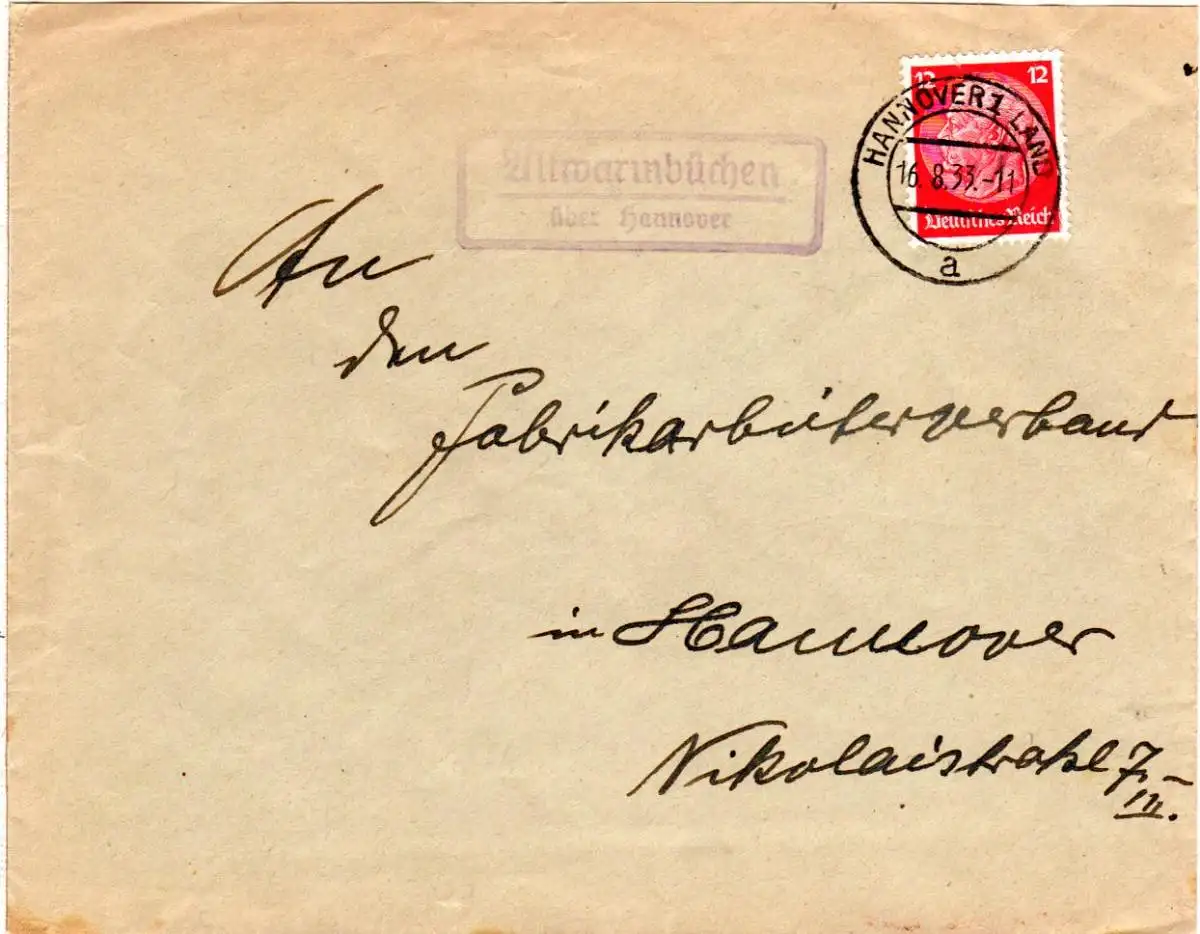 12 12
HANNOVER 1 LAND
16.8.33.-11
a
Deutsches Reich
Altwarmbüchen
über Hannover
An
den
Fabrikarbeiterverband
in Hannover
Nikolaistraße 7
III.